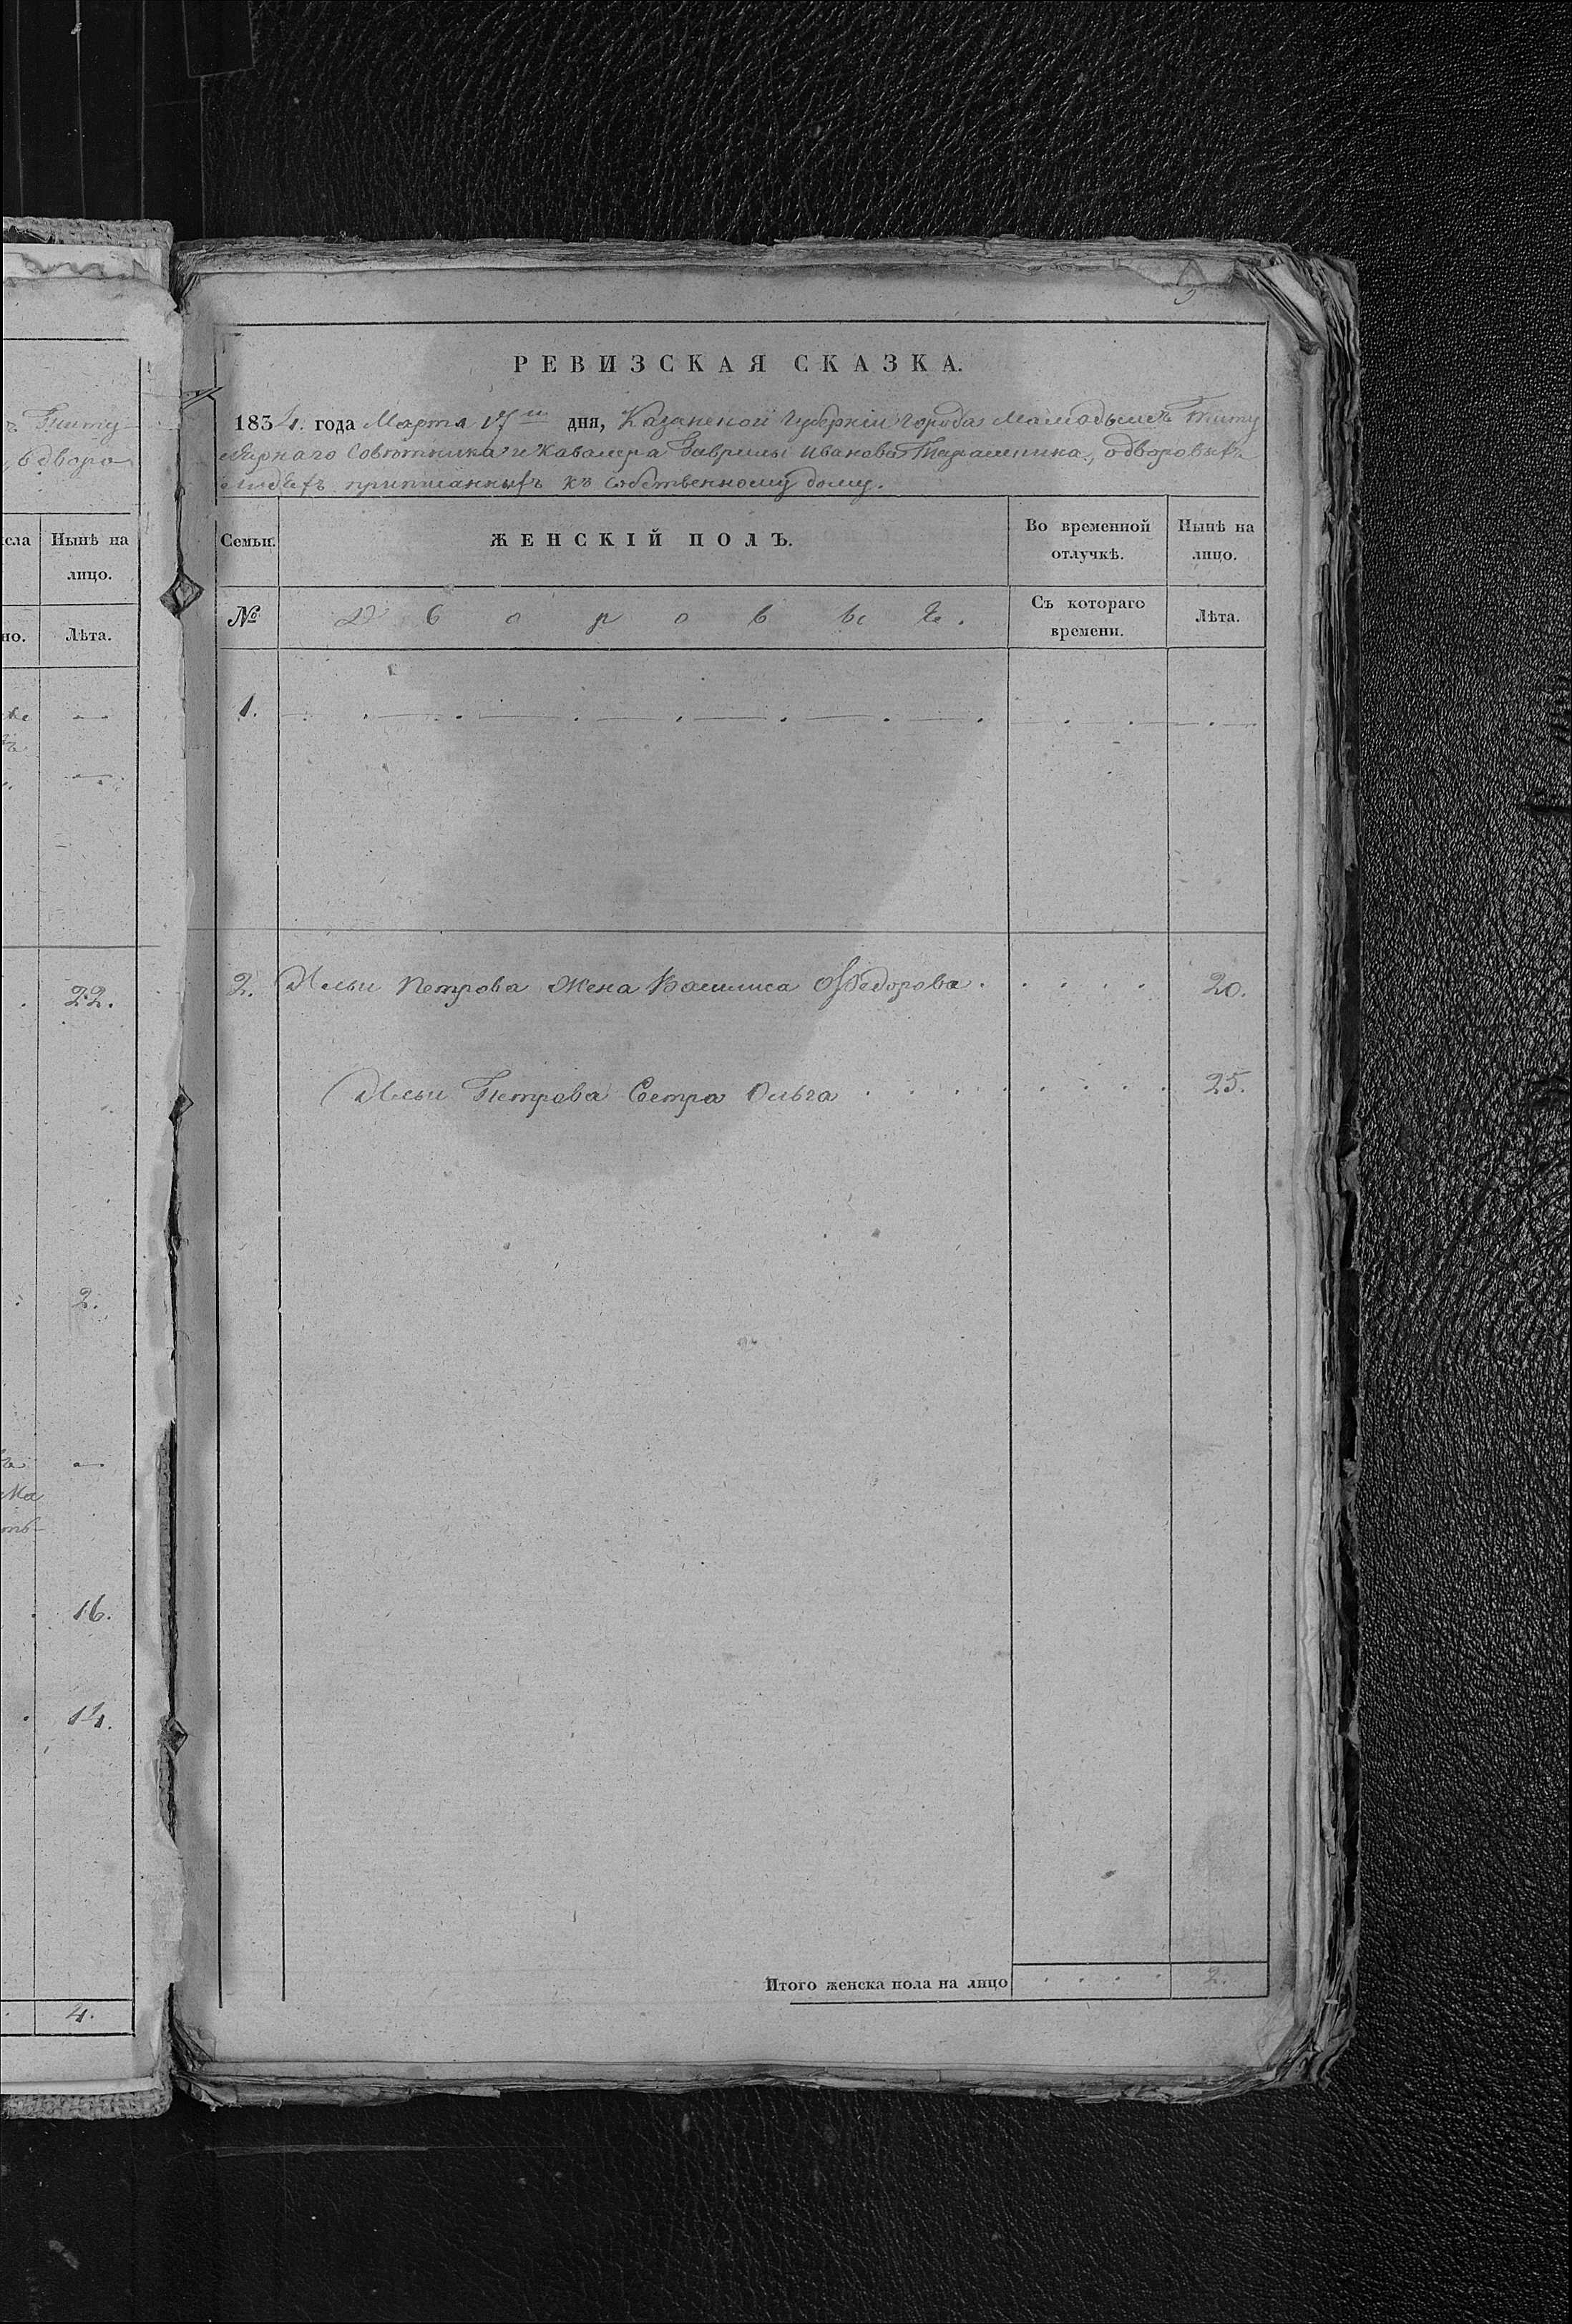 ъ Титу-
о дворо
сла Нынѣ на
лицо.
но. Лѣта.
22.
2.
16.
14.
4.
РЕВИЗСКАЯ СКАЗКА.
1834. года Марта 17го дня, Казанской Губерніи города Мамадышъ Титу
лярнаго Совѣтника и Кавалера Гаврилы Иванова, о дворовыхъ
людѣхъ приписанныхъ къ собственному дому.
Семьи. ЖЕНСКІЙ ПОЛЪ. Во временной Нынѣ на
отлучкѣ. лицо.
№ Дворовые. Съ котораго Лѣта.
времени.
1.
2. Ильи Петрова Жена Василиса Федорова. 20.
Ильи Петрова Сестра Ольга 25.
Итого женска пола на лицо 2.